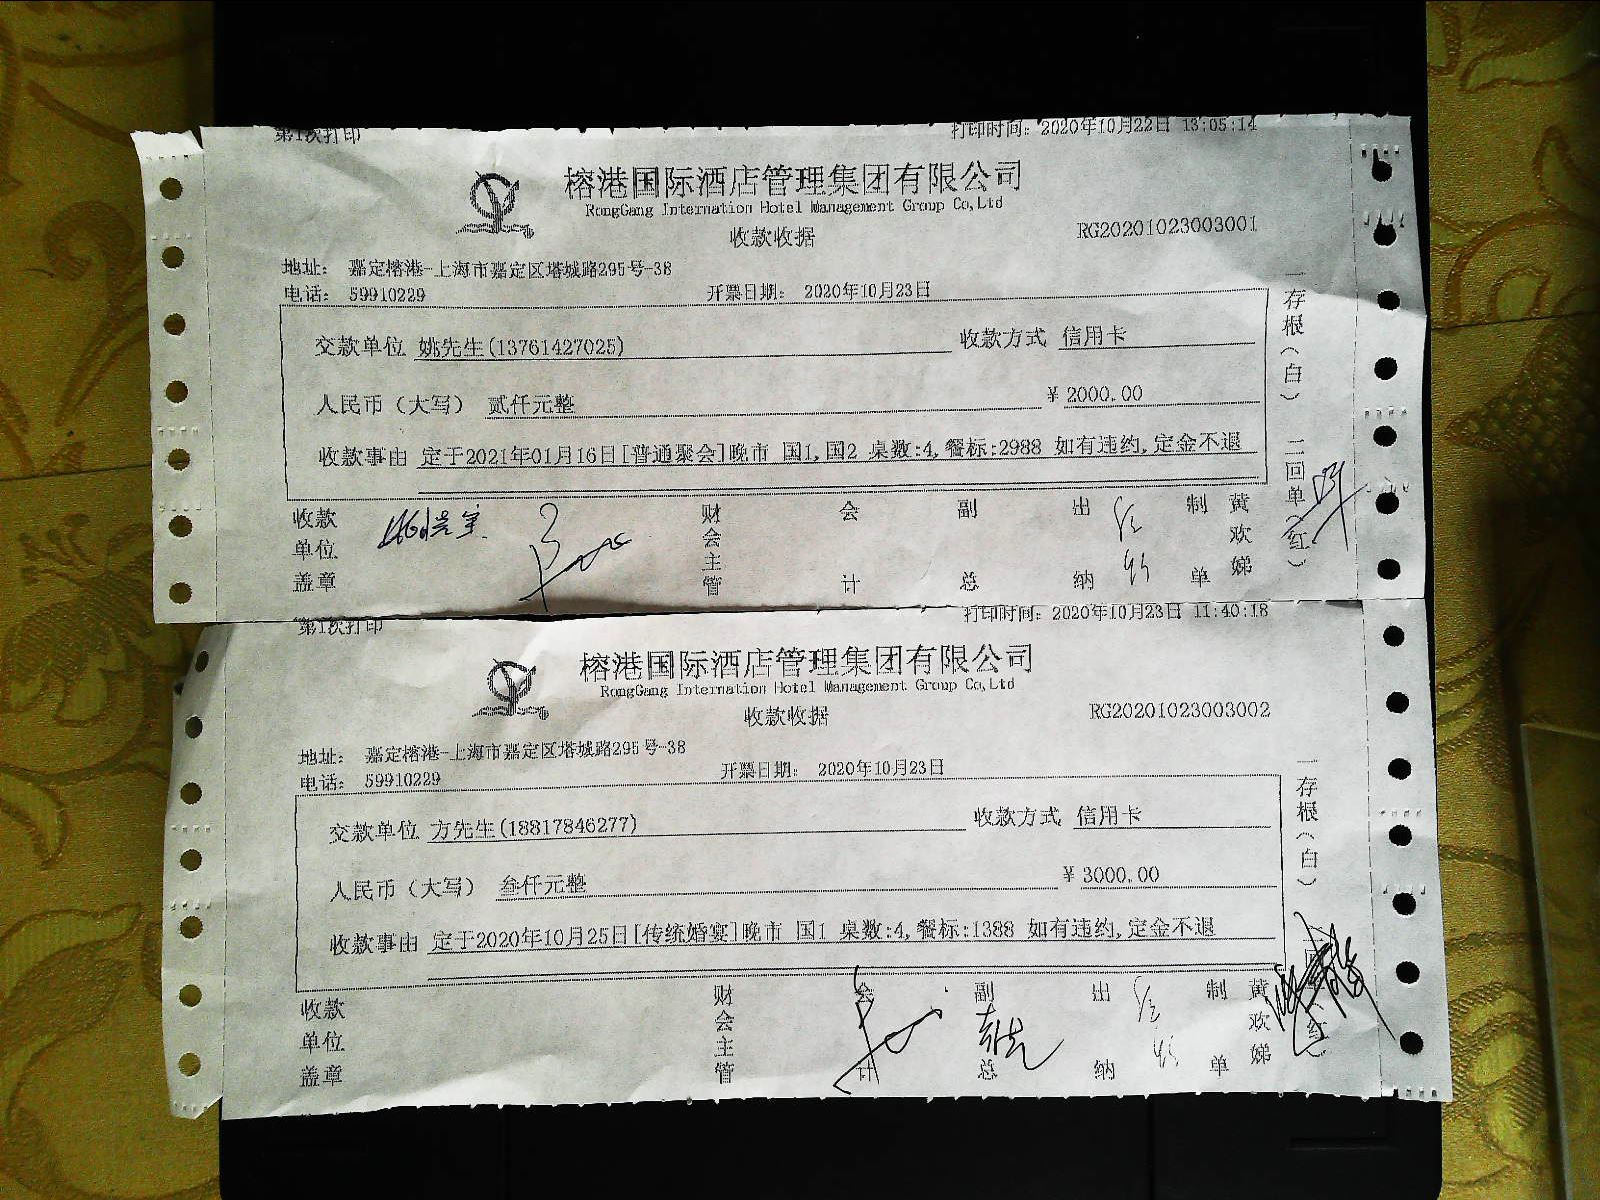 第1次打印 打印时间：2020年10月22日 13:05:14
榕港国际酒店管理集团有限公司
RongGang Internation Hotel Management Group Co,Ltd
收款收据 RG20201023003001
地址： 嘉定榕港-上海市嘉定区塔城路295号-38
电话： 59910229 开票日期： 2020年10月23日
交款单位 姚先生(13761427025) 收款方式 信用卡
人民币（大写） 贰仟元整 ￥2000.00
收款事由 定于2021年01月16日[普通聚会]晚市 国1,国2 桌数:4,餐标:2988 如有违约,定金不退
收款单位盖章 财会主管 会计 副总 出纳 制单 黄欢娣
一存根（白） 二回单（红）
第1次打印 打印时间：2020年10月23日 11:40:18
榕港国际酒店管理集团有限公司
RongGang Internation Hotel Management Group Co,Ltd
收款收据 RG20201023003002
地址： 嘉定榕港-上海市嘉定区塔城路295号-38
电话： 59910229 开票日期： 2020年10月23日
交款单位 方先生(18817846277) 收款方式 信用卡
人民币（大写） 叁仟元整 ￥3000.00
收款事由 定于2020年10月25日[传统婚宴]晚市 国1 桌数:4,餐标:1388 如有违约,定金不退
收款单位盖章 财会主管 会计 副总 出纳 制单 黄欢娣
一存根（白） 红）